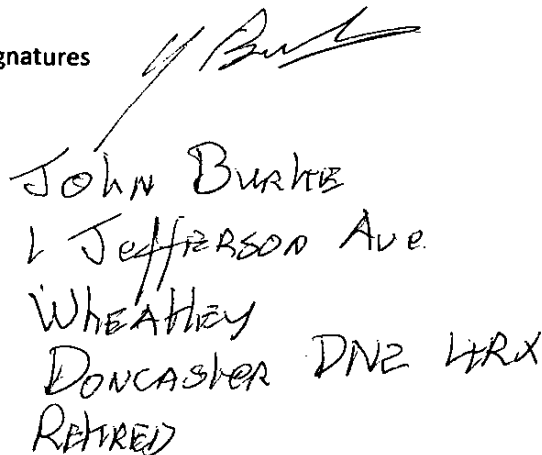 gnatures
John Burke
1 Jefferson Ave.
Wheatley
Doncaster DN2 4RX
Retired